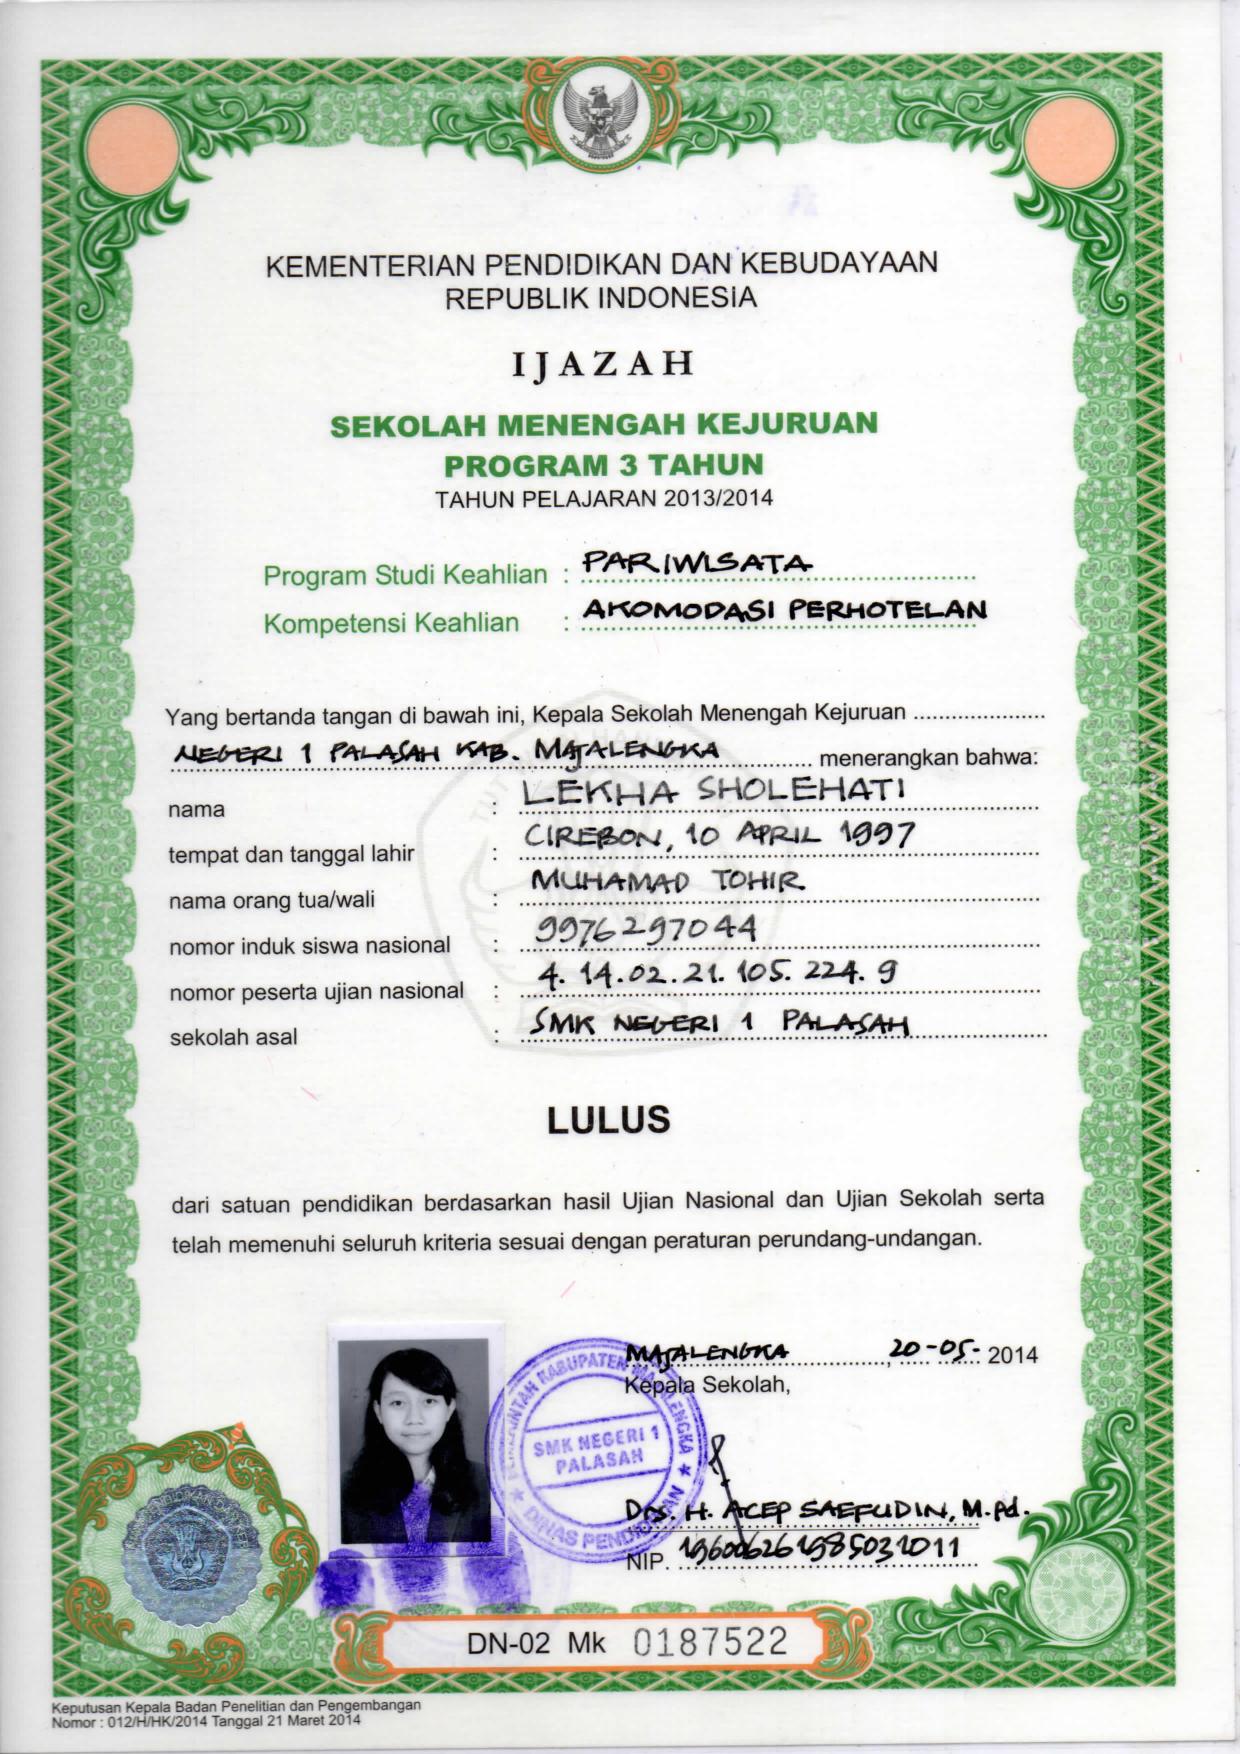 KEMENTERIAN PENDIDIKAN DAN KEBUDAYAAN
REPUBLIK INDONESIA
IJAZAH
SEKOLAH MENENGAH KEJURUAN
PROGRAM 3 TAHUN
TAHUN PELAJARAN 2013/2014
Program Studi Keahlian : PARIWISATA
Kompetensi Keahlian : AKOMODASI PERHOTELAN
Yang bertanda tangan di bawah ini, Kepala Sekolah Menengah Kejuruan
NEGERI 1 PALASAH KAB. MAJALENGKA menerangkan bahwa:
nama : LEKHA SHOLEHATI
tempat dan tanggal lahir : CIREBON, 10 APRIL 1997
nama orang tua/wali : MUHAMAD TOHIR
nomor induk siswa nasional : 9976297044
nomor peserta ujian nasional : 4. 14.02.21. 105. 224. 9
sekolah asal : SMK NEGERI 1 PALASAH
LULUS
dari satuan pendidikan berdasarkan hasil Ujian Nasional dan Ujian Sekolah serta
telah memenuhi seluruh kriteria sesuai dengan peraturan perundang-undangan.
MAJALENGKA, 20-05- 2014
Kepala Sekolah,
PEMERINTAH KABUPATEN MAJALENGKA
SMK NEGERI 1
PALASAH
DINAS PENDIDIKAN
Drs. H. ACEP SAEFUDIN, M.Pd.
NIP. 196006261985031011
DN-02 Mk 0187522
Keputusan Kepala Badan Penelitian dan Pengembangan
Nomor : 012/H/HK/2014 Tanggal 21 Maret 2014